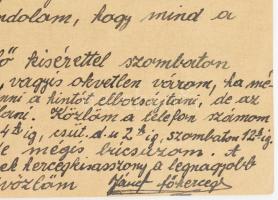 ndolom, hogy mind a
ő kisérettel szombaton
, vagyis okvetlen várom, ha mé-
nni a hintót elbocsájtani, de az
lani. Közlöm a telefon számom
4h ig, csüt. d.u 2h ig, szombaton 12h ig.
de mégis búcsúzom. A
ek hercegkisasszony a legnagyobb
vözlöm József főherceg